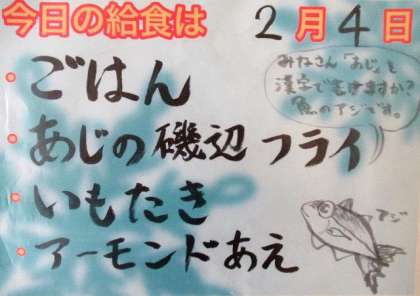 今日の給食は 2月4日
・ごはん
・あじの磯辺フライ
・いもたき
・アーモンドあえ
みなさん「あじ」を
漢字でかきますか?
魚のアジです。
アジ